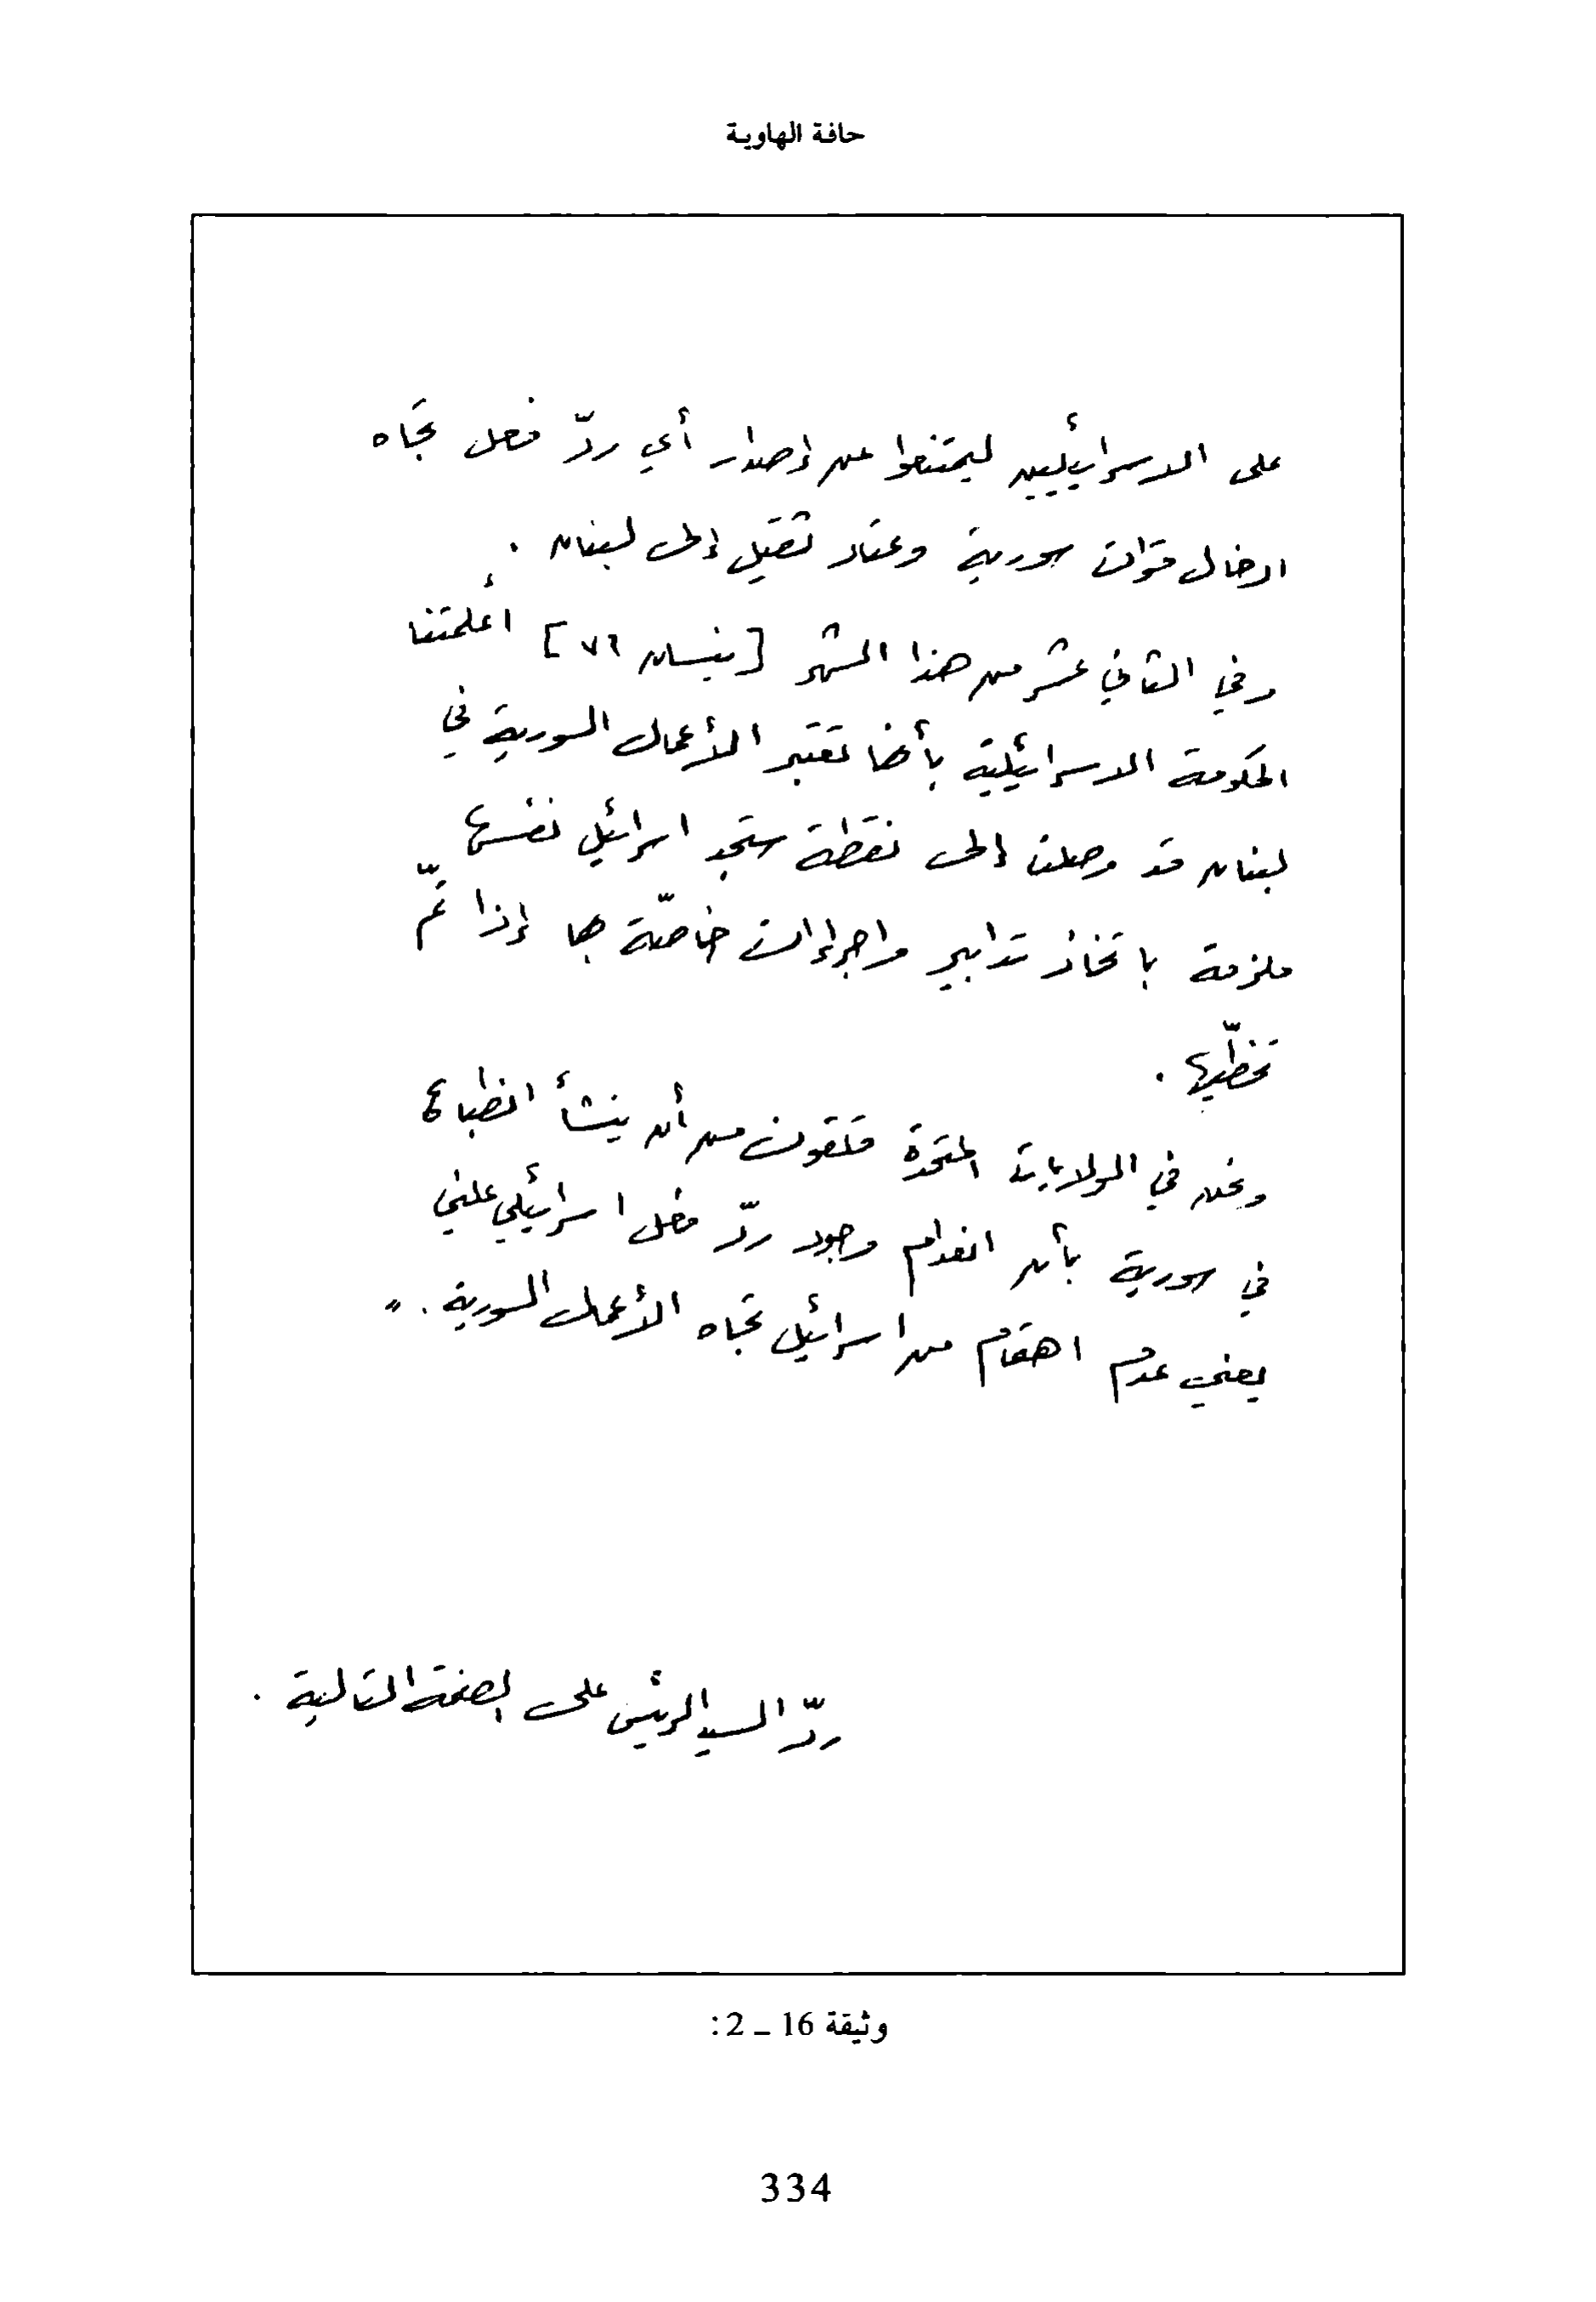 حافة الهاوية
على الاسرائيليين ليمتنعوا عن إصدار أي ردّ فعل تجاه
ادخال قوّات سورية وعتاد ثقيل إلى لبنان .
وفي الثاني عشر من هذا الشهر [نيسان ٧٦] أعلمتنا
الحكومة الاسرائيلية بأنها تعتبر الأعمال السورية في
لبنان قد وصلت إلى نقطة ستجد اسرائيل نفسها
ملزمة باتخاذ تدابير واجراءات خاصّة بها إذا تمّ
تخطّيها .
ونحن في الولايات المتحدة قلقون من أن ينشأ انطباع
في سورية بأن انعدام وجود ردّ فعل اسرائيلي علني
يعني عدم اهتمام من اسرائيل تجاه الأعمال السورية . "
ردّ السيد الرئيس على الصفحة التالية .
وثيقة 16 ـ 2 :
334